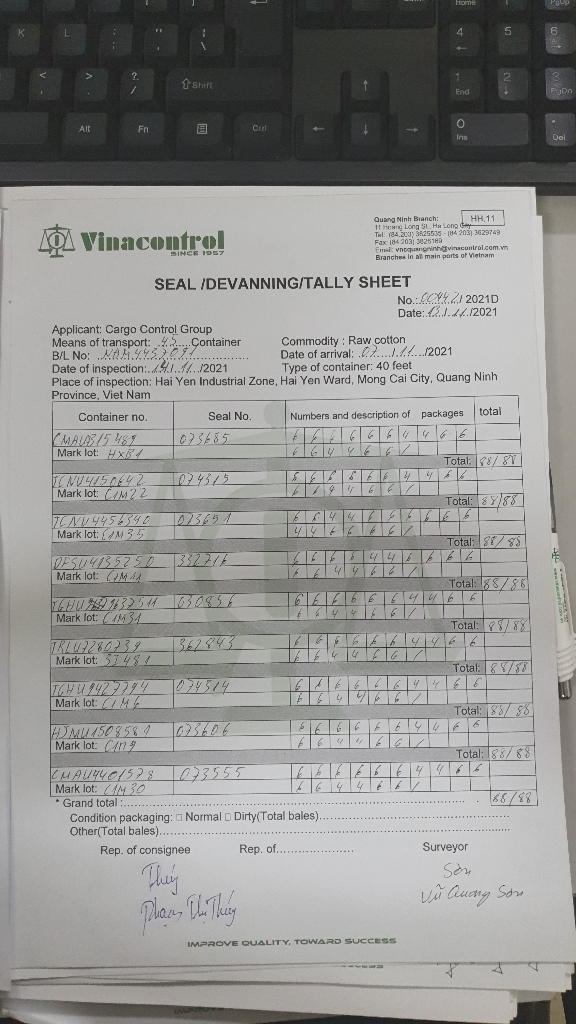 K L : ; " ' | \
Home PgUp
4 ← 5 6 →
< , > . ? / ⇧Shift ↑ 1 End 2 ↓ 3 PgDn
Alt Fn Ctrl ← ↓ → 0 Ins . Del
Vinacontrol
SINCE 1957
Quang Ninh Branch:
HH.11
11 Hoang Long St., Ha Long City
Tel: (84.203) 3825535 - (84.203) 3629749
Fax: (84.203) 3826169
Email: vncquangninh@vinacontrol.com.vn
Branches in all main ports of Vietnam
SEAL /DEVANNING/TALLY SHEET
No.: 00442/ 2021D
Date: 13/11/2021
Applicant: Cargo Control Group
Means of transport: 45 Container
Commodity : Raw cotton
B/L No: NAM4457091
Date of arrival: 07/11/2021
Date of inspection: 14/11/2021
Type of container: 40 feet
Place of inspection: Hai Yen Industrial Zone, Hai Yen Ward, Mong Cai City, Quang Ninh
Province, Viet Nam
Container no. Seal No. Numbers and description of packages total
073685 6 6 6 6 6 6 4 4 6 6
Mark lot: HXB1 6 6 4 4 6 6 /
Total: 88/88
TCNU4150642 074315 6 6 6 6 6 6 4 4 6 6
Mark lot: C1M22 6 6 4 4 6 6 /
Total: 88/88
TCNU4456340 073651 6 6 4 4 6 6 6 6 6 6
Mark lot: C1M35 4 4 6 6 6 6 /
Total: 88/88
332716 6 6 6 6 4 4 6 6 6 6
Mark lot: C1M11 6 6 4 4 6 6 /
Total: 88/88
030856 6 6 6 6 6 6 4 4 6 6
Mark lot: C1M31 6 6 4 4 6 6 /
Total: 88/88
TRLU7280739 362843 6 6 6 6 6 6 4 4 6 6
Mark lot: SJ481 6 6 4 4 6 6 /
Total: 88/88
TGHU9427794 074514 6 6 6 6 6 6 4 4 6 6
Mark lot: C1M6 6 6 4 4 6 6 /
Total: 88/88
HJMU1508581 073606 6 6 6 6 6 6 4 4 6 6
Mark lot: C1M9 6 6 4 4 6 6 /
Total: 88/88
CMAU4401578 073555 6 6 6 6 6 6 4 4 6 6
Mark lot: C1M30 6 6 4 4 6 6 /
* Grand total : 88/88
Condition packaging: □ Normal □ Dirty(Total bales)
Other(Total bales)
Rep. of consignee Rep. of Surveyor
Thúy Sơn
Phạm Thị Thúy Vũ Quang Sơn
IMPROVE QUALITY, TOWARD SUCCESS